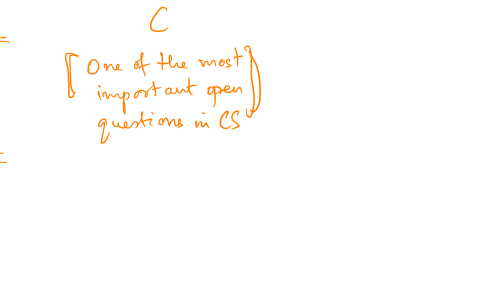 C
[ One of the most
important open
questions in CS ]